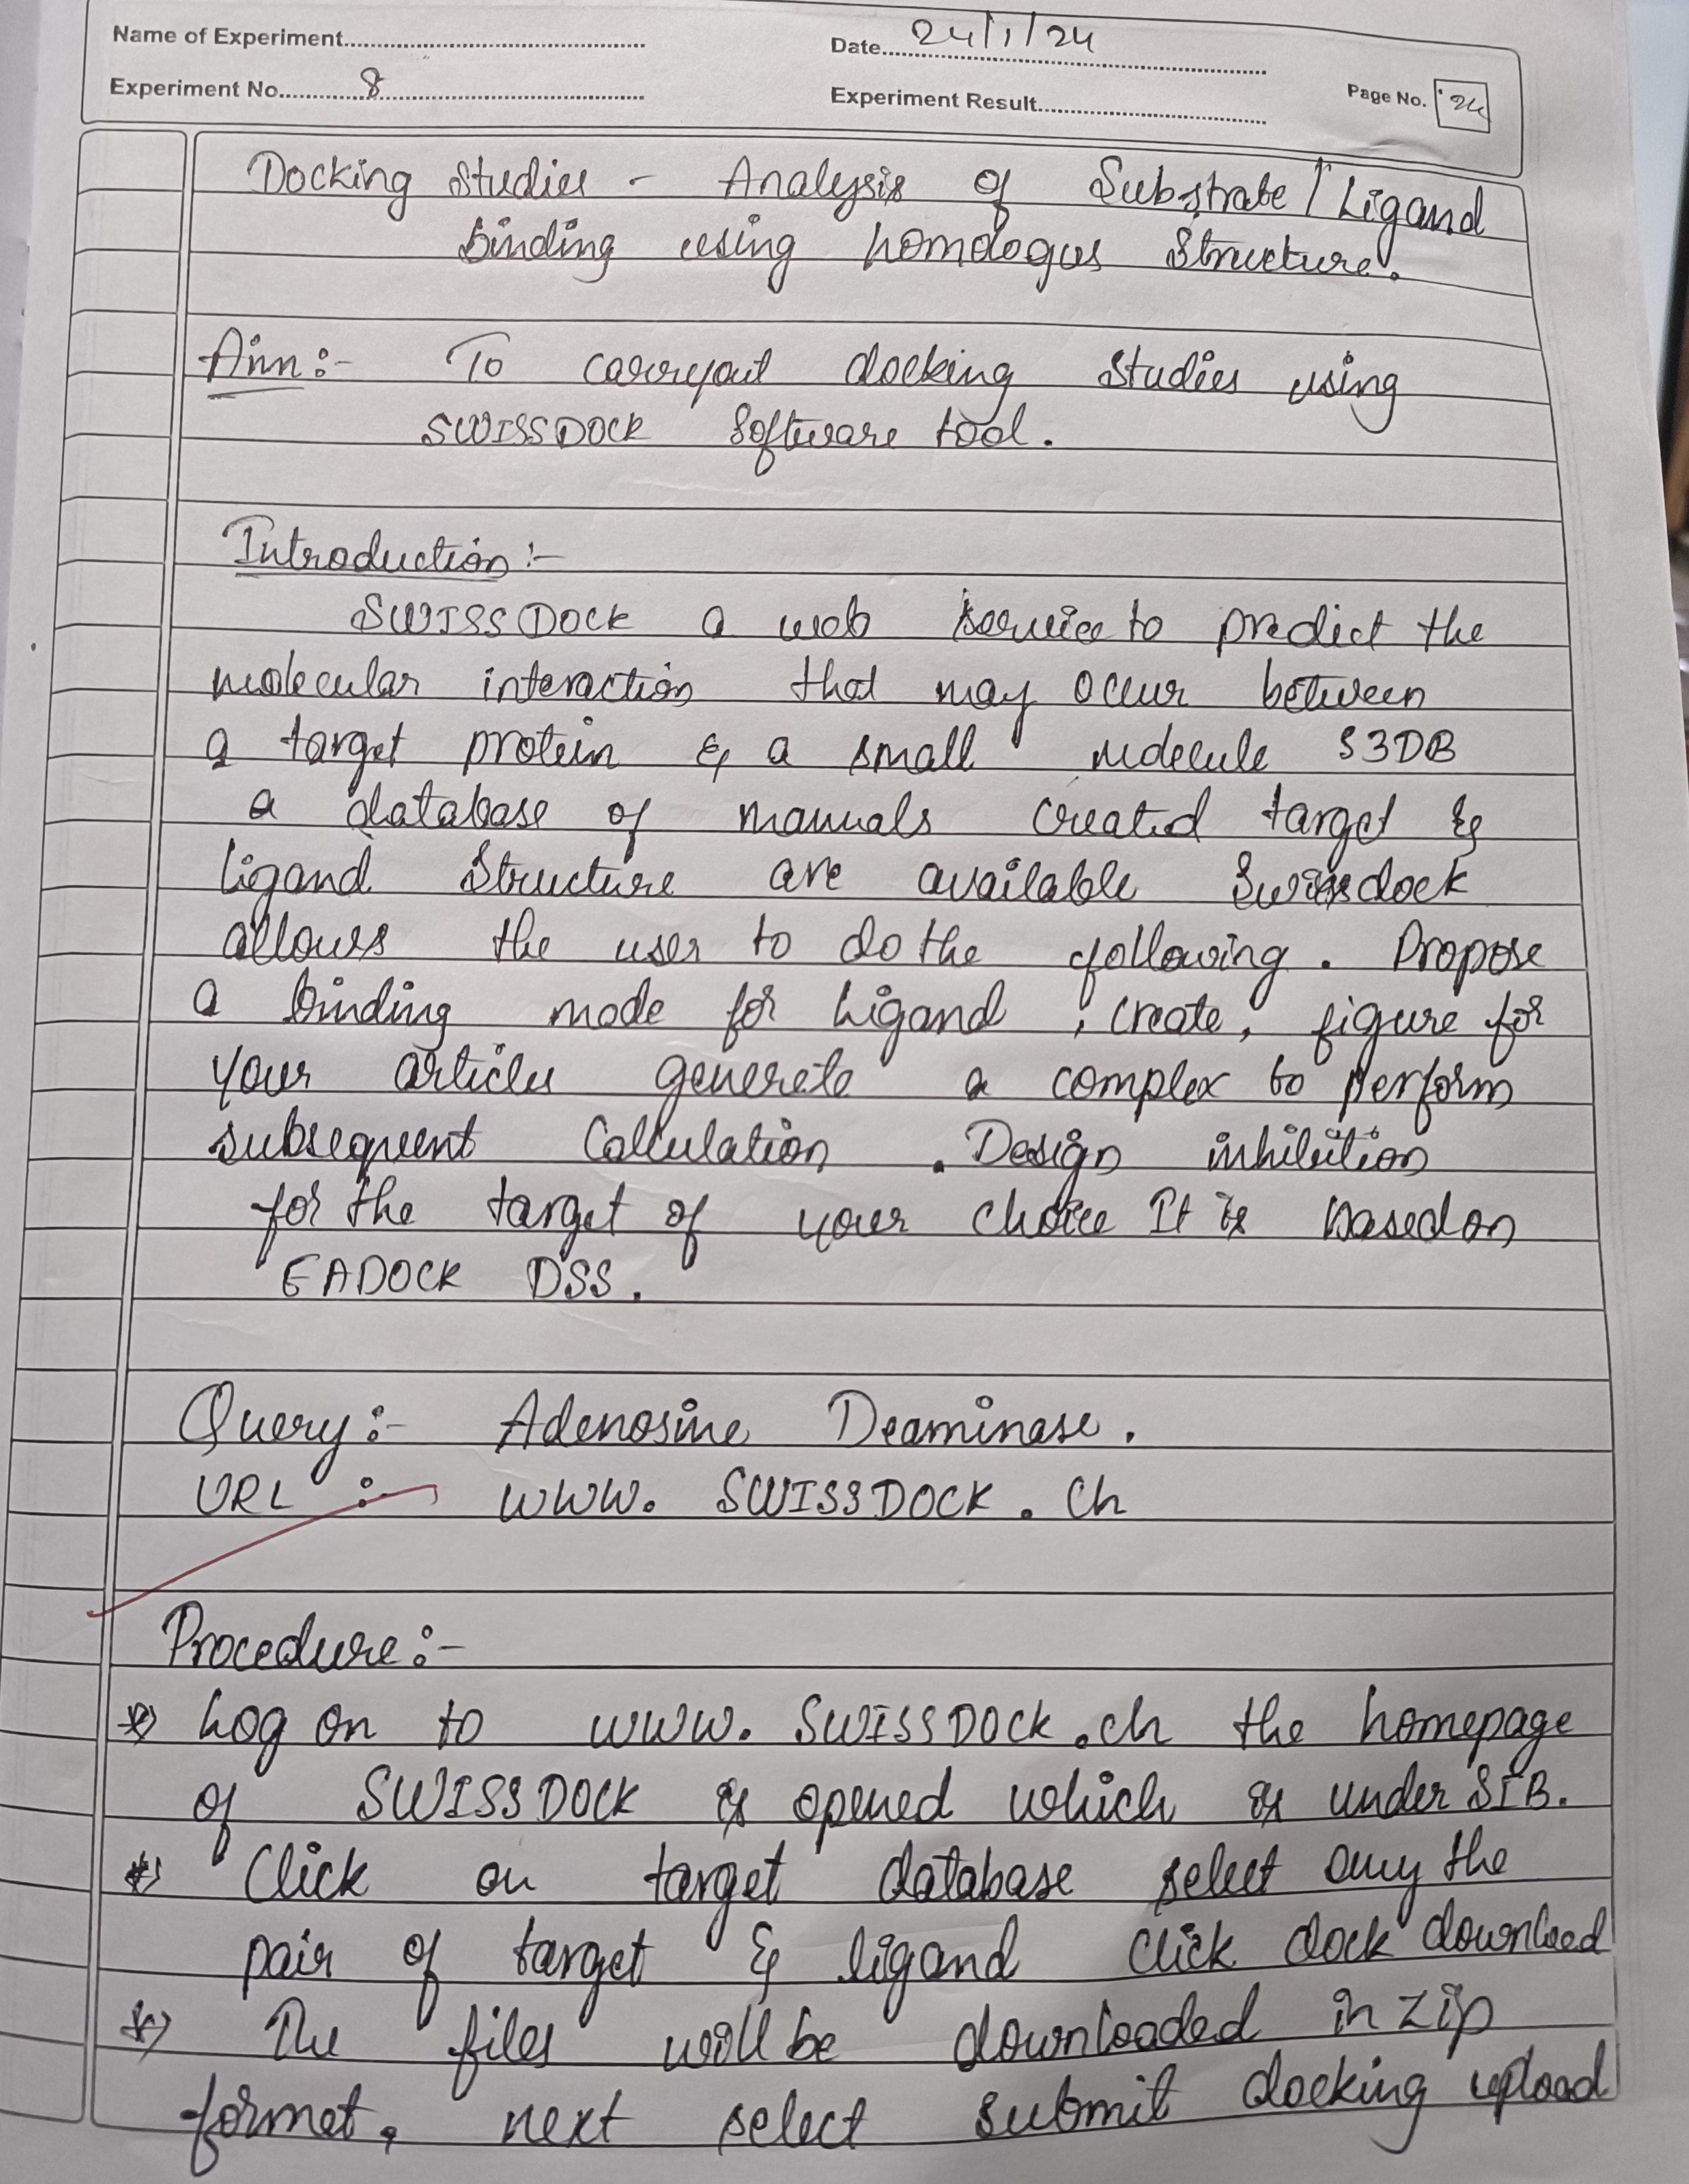 Name of Experiment
Date 24/1/24
Experiment No. 8
Experiment Result
Page No. 24
Docking Studies - Analysis of Substrate / Ligand
binding using homologus Structure.
Aim:- To carryout docking studies using
SWISSDOCK Software tool.
Introduction :-
SWISSDOCK a web service to predict the
molecular interaction that may occur between
a target protein & a small molecule S3DB
a database of manuals created target &
ligand Structure are available Swissdock
allows the user to do the following. Propose
a binding mode for ligand , create, figure for
your articles generete a complex to perform
subsequent Calculation . Design inhibition
for the target of your choice It is based on
EADOCK DSS.
Query :- Adenosine Deaminase.
URL :- www. SWISSDOCK . Ch
Procedure :-
*) Log on to www. SWISSDOCK .ch the homepage
of SWISSDOCK is opened which is under SIB.
*) Click on target database select any the
pair of target & ligand click dock download
*) The files will be downloaded in zip
formet, next select submit docking upload